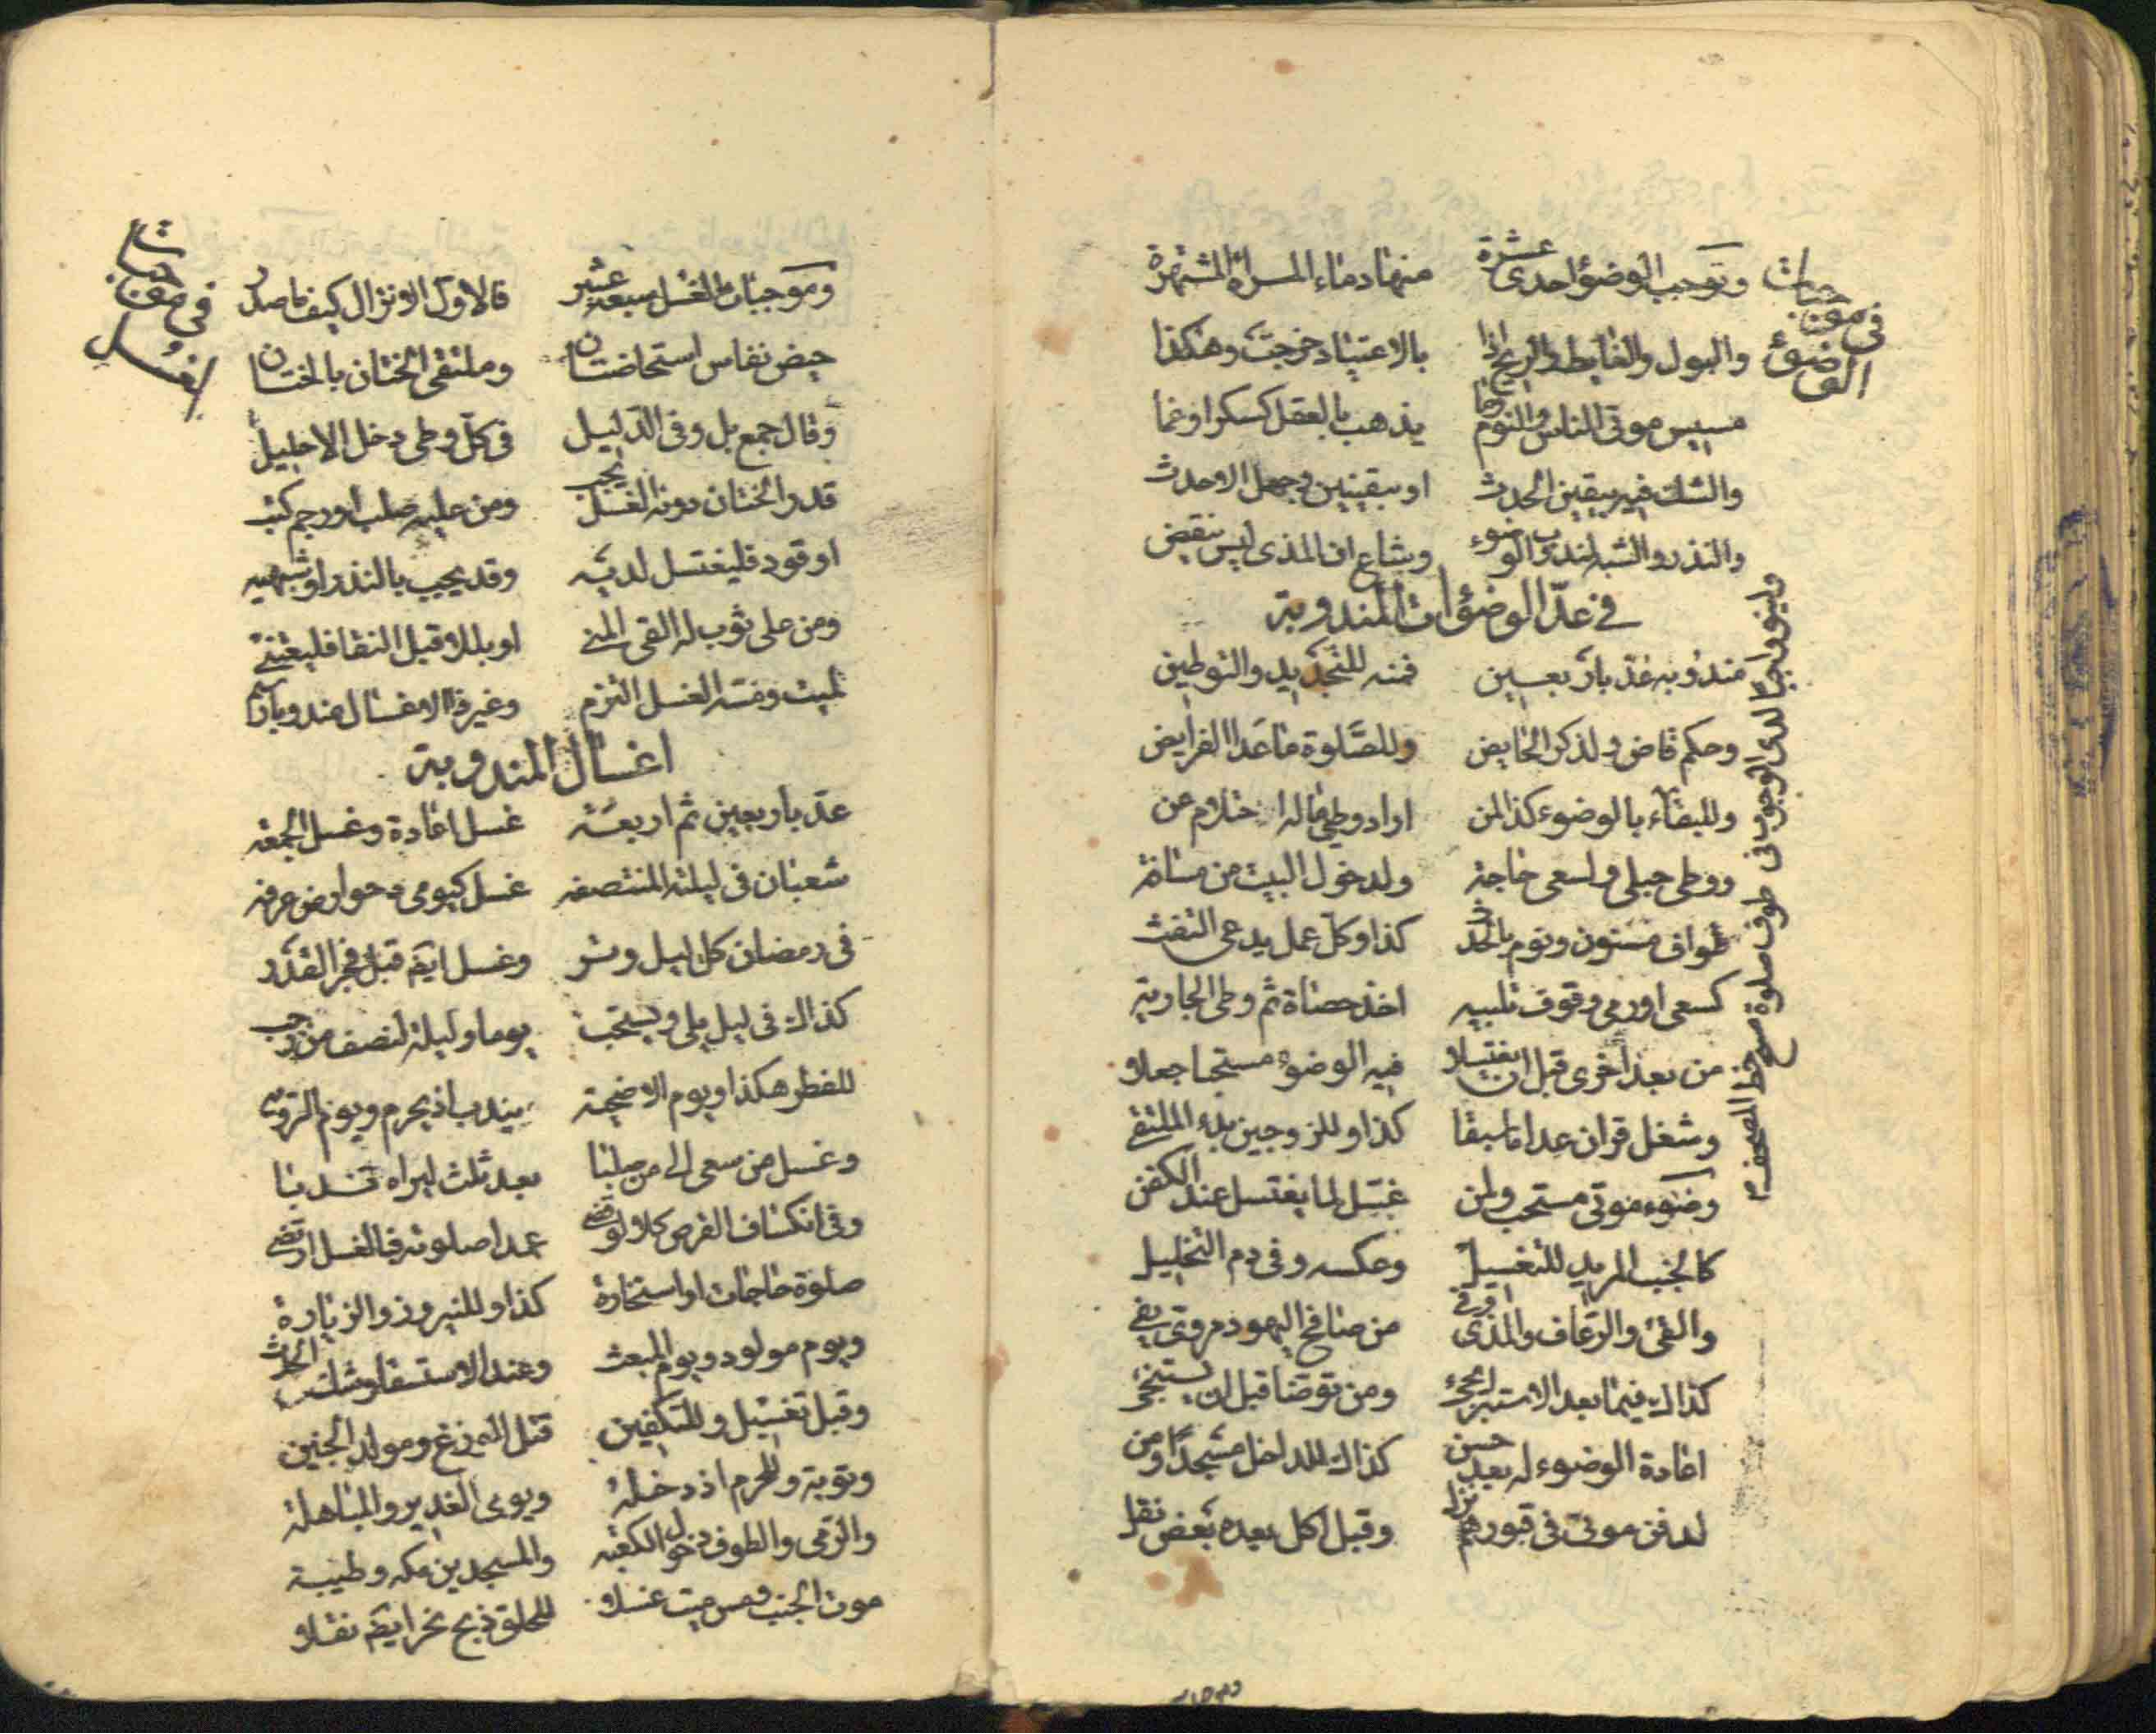 في موجبات
الوضوء
وتوجب الوضوء احدى عشرة منها دماء المراة المشتهرة
والبول والغايط والريح اذا بالاعتياد خرجت وهكذا
مسيس موتى الناس والنوم وما يذهب بالعقل كسكر اوغما
والشك فيه بيقين الحدث او بيقينين وجهل الاحدث
والنذر والشبه لندب الوضوء وشاع ان المذى ليس ينقض
في عدّ الوضوات المندوبة
مندوبه عدّ باربعين فمنه للتجديد والتوطين
وحكم قاض ولذكر الحايض وللصّلوة ما عدا الفرايض
وللبقاء بالوضوء كذا لمن اراد وطى ماله احتلام عن
ووطى حبلى ولسعى حاجة ولدخول البيت من مسافة
طواف مسنون ونوم بالحدث كذا وكل عمل يدعى التفث
كسعى اورمى وقوف تلبيه اخذ حصاة ثم وطى الجارية
من بعد اخرى قبل ان يغتسلا فيه الوضوء مستحبا جعلا
وشغل قران عدا ما سبقا كذا وللزوجين بدء الملتقى
وضوء موتى مستحب ولمن غسّل لما يغتسل عند الكفن
كالجنب المريد للتغسيل وعكسه وفى دم التخليل
والقئ والرعاف والمذى من صافح اليهود مروى
كذاك فيما بعد الاستبرا ومن توضا قبل ان يستنجى
اعادة الوضوء له بعد حسن كذاك للداخل مسجدًا ومن
لدفن موتى فى قبورهم نزل وقبل اكل بعده بعض نقل
في موجبات
الغسل
وموجبات الغسل سبعة عشر فالاول الانزال كيف ما صدر
حيض نفاس استحاضتان وملتقى الختان بالختان
وقال جمع بل وفى الدليل فى كل وطى دخل الاحليل
قدر الختان دونه الغسل يجب ومن عليه صلب او رجم كتب
او قود فليغتسل لديه وقد يجب بالنذر او شبهيه
ومن على ثوب له القى المنى او بللا قبل النقا فليعتنى
لميت ومسّه الغسل التزم وغير ذا الاغسال
اغسال المندوبة
عدّ باربعين ثم اربعة غسل اعادة وغسل الجمعه
شعبان فى ليلته المنتصفه غسل كيومى دحو ارض عرفه
فى رمضان كل ليل وتر وغسل ايضا قبل فجر القدر
كذاك فى ليل يلى ويستحب يوما وليلة لنصف من رجب
للفطر هكذا ويوم الاضحية يندب اذ يحرم ويوم التروية
وغسل من سعى الى من صلبا بعد ثلث ليراه ندبا
وفى انكساف القرص كلا لو قضى عمدا صلوته فبالغسل ارتضى
صلوة حاجات او استخارة كذا وللنيروز والزيارة
ويوم مولود ويوم المبعث وعند الاستسقا وشك الحدث
وقبل تغسيل وللتكفين قتل الوزغ ومولد الجنين
وتوبة وللحرم اذ دخله ويومى الغدير والمباهلة
والرمى والطوف دخول الكعبه والمسجدين مكه وطيبة
موت الجنب ومس ميت غسلا للحلق ذبح نحر ايضا نقلا